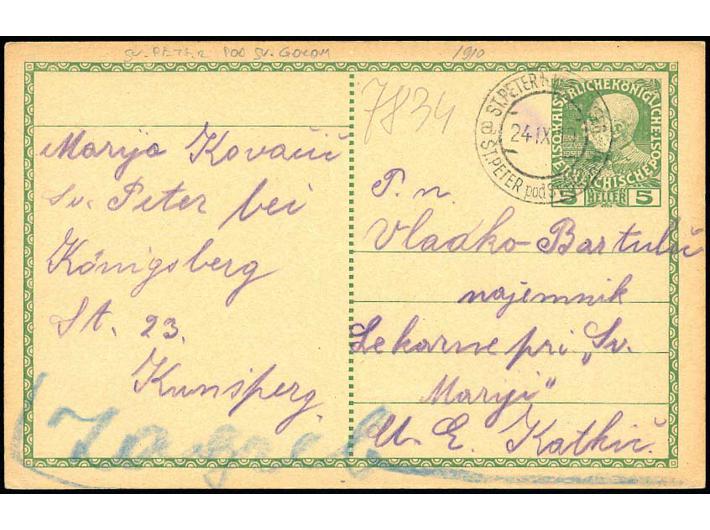 SV. PETER POD SV. GOROM 1910
7834
ST. PETER
24 IX
ST. PETER pod
KAISERLICHE KÖNIGLICHE ÖSTERREICHISCHE
5 HELLER 5
Marija Kovačič
Sv. Peter bei
Königsberg
St. 23.
Kunsperg.
P. n.
Vladko Bartulić
najemnik
Lekarne pri „Sv.
Mariji"
U. E. Katkić.
Zagreb